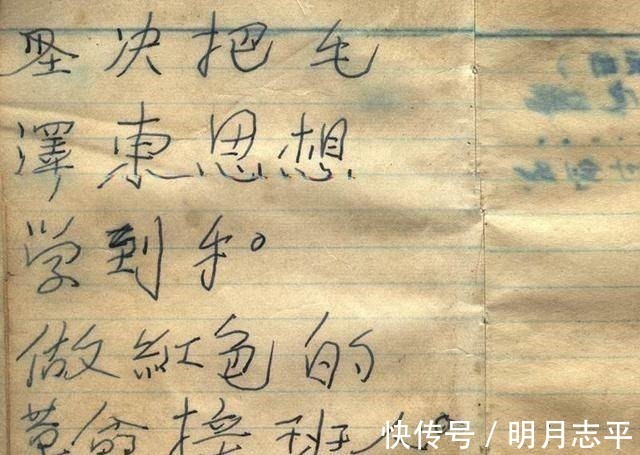 坚决把毛
澤東思想
学到手。
做紅色的
革命接班人。
快传号 / 明月志平